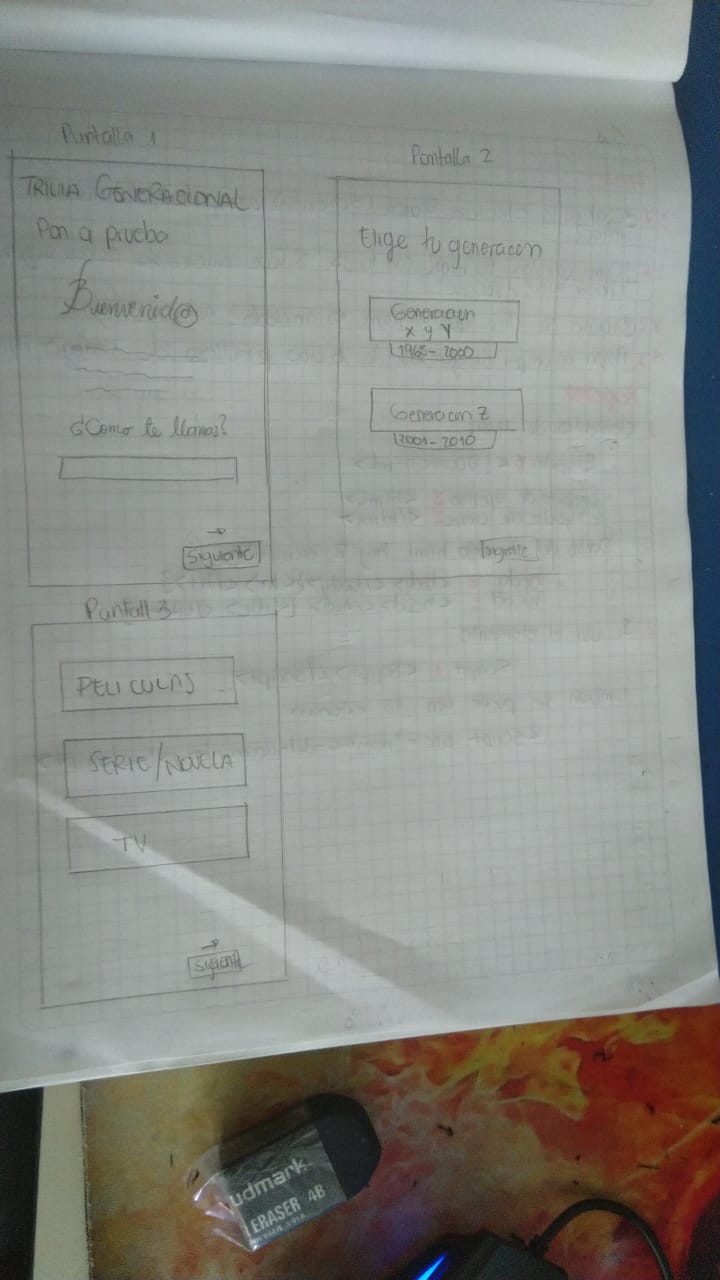 Pantalla 1
TRIVIA GENERACIONAL
Pon a prueba
Bienvenid@
¿Como te llamas?
Siguiente
Pantalla 2
Elige tu generacion
Generacion
X y Y
1965-2000
Generacion Z
2001-2010
Pantall 3
PELICULAS
SERIE/NOVELA
TV
Siguiente
udmark
ERASER 4B